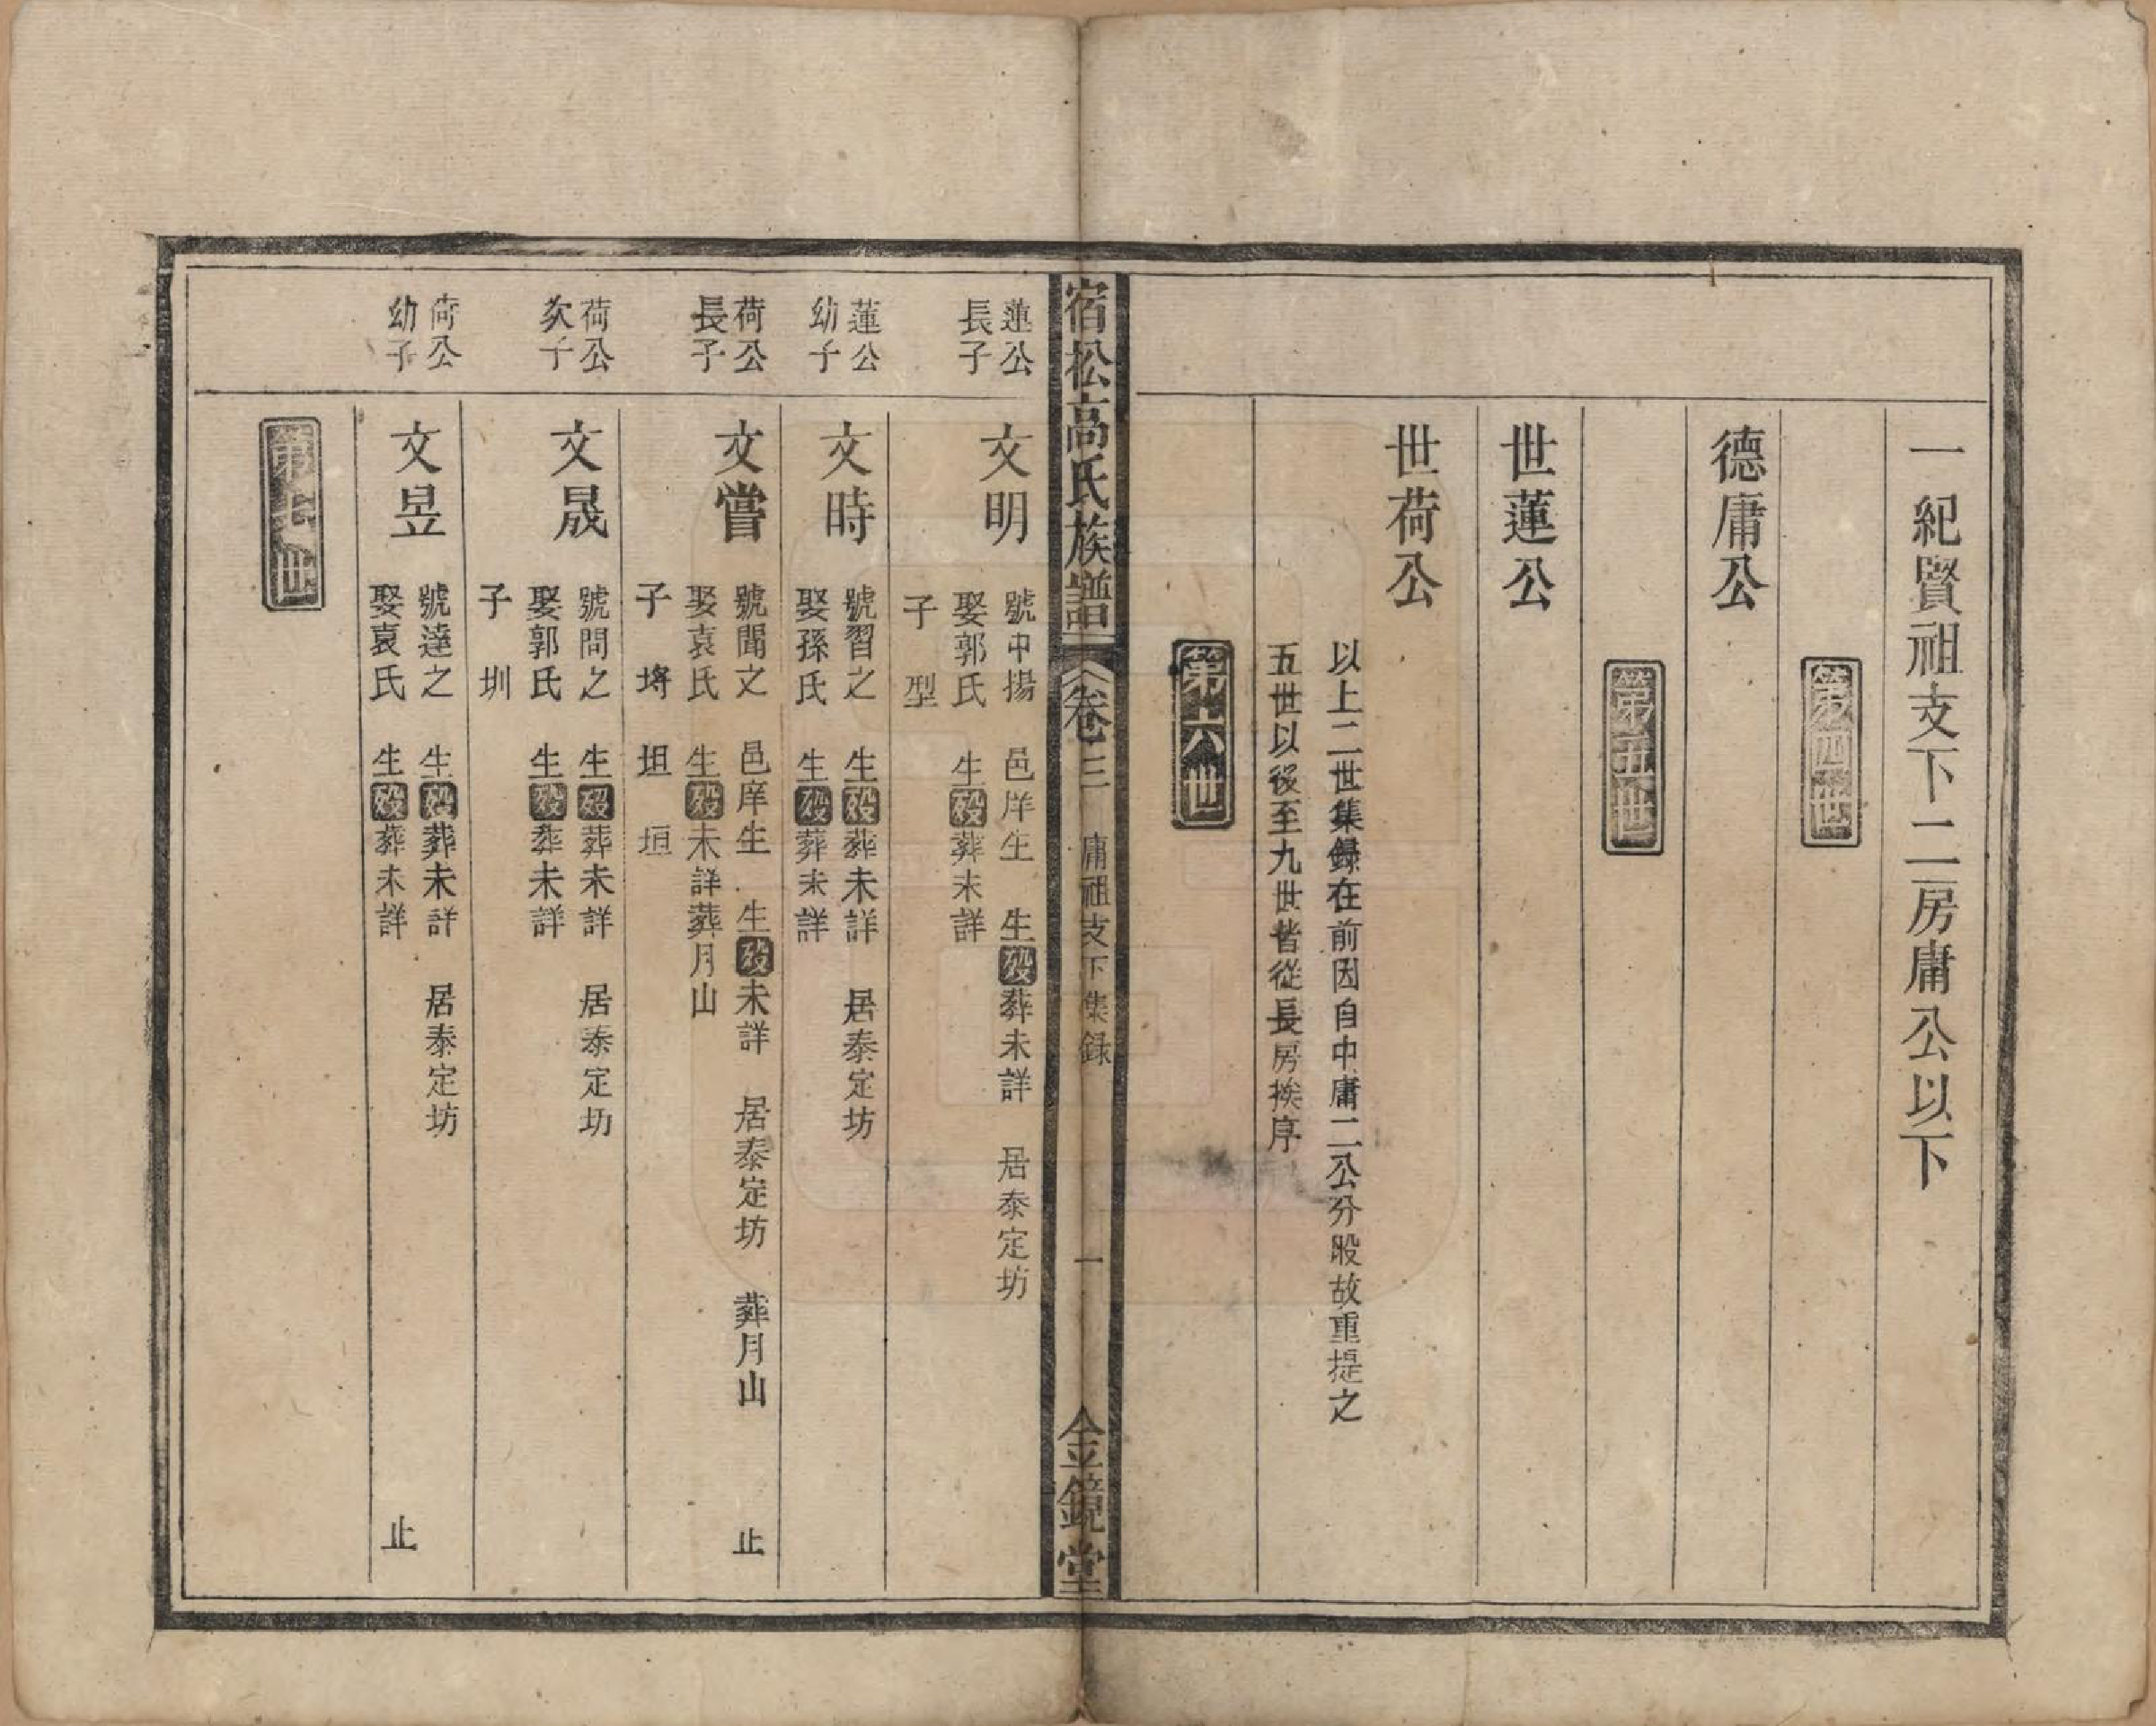 一紀賢祖支下二房庸公以下
第四世
德庸公
第五世
世蓮公
世荷公
以上二世集錄在前因自中庸二公分股故重提之
五世以後至九世皆從長房挨序
第六世
宿松高氏族譜
卷三
庸祖支下集録
一
金鏡堂
蓮公
長子
文明
號中揚 邑庠生 生殁葬未詳 居泰定坊
娶郭氏 生殁葬未詳
子 型
蓮公
幼子
文時
號習之 生殁葬未詳 居泰定坊
娶孫氏 生殁葬未詳
荷公
長子
文嘗
號聞文 邑庠生 生殁未詳 居泰定坊 葬月山 止
娶袁氏 生殁未詳葬月山
子 埓 坦 垣
荷公
次子
文晟
號問之 生殁葬未詳 居泰定坊
娶郭氏 生殁葬未詳
子 圳
荷公
幼子
文昱
號達之 生殁葬未詳 居泰定坊
娶袁氏 生殁葬未詳
止
第七世